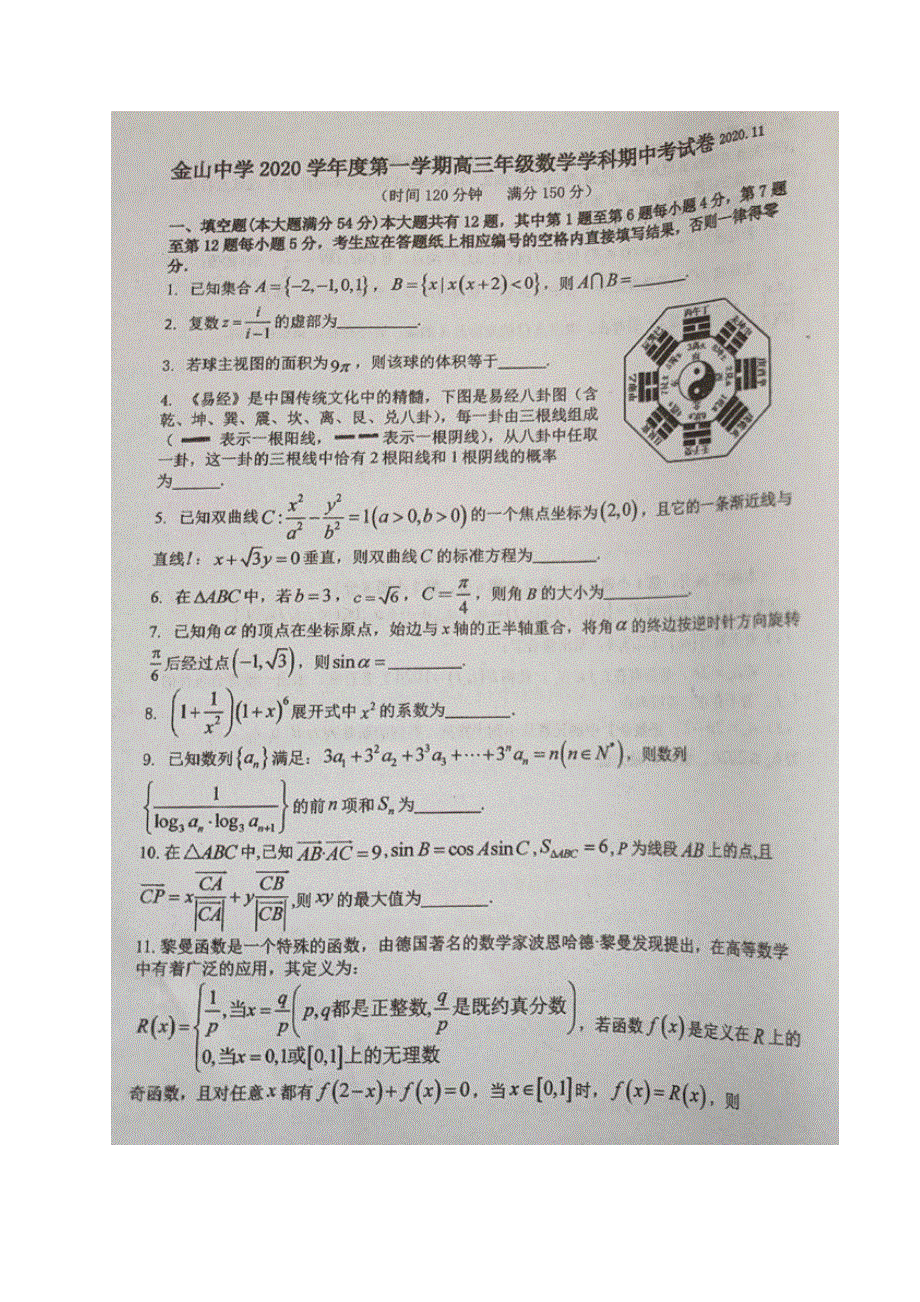 金山中学 2020 学年度第一学期高三年级数学学科期中考试卷 2020.11
(时间 120 分钟 满分 150 分)
一、填空题(本大题满分 54 分)本大题共有 12 题，其中第 1 题至第 6 题每小题 4 分，第 7 题
至第 12 题每小题 5 分，考生应在答题纸上相应编号的空格内直接填写结果，否则一律得零
分.
1. 已知集合 A={-2,-1,0,1}，B={x|x(x+2)<0}，则 A∩B=______.
2. 复数 z=i/(i-1) 的虚部为________.
3. 若球主视图的面积为 9π，则该球的体积等于______.
4. 《易经》是中国传统文化中的精髓，下图是易经八卦图（含
乾、坤、巽、震、坎、离、艮、兑八卦），每一卦由三根线组成
（ ━━ 表示一根阳线，━ ━ 表示一根阴线），从八卦中任取
一卦，这一卦的三根线中恰有 2 根阳线和 1 根阴线的概率
为______.
5. 已知双曲线 C: x²/a² - y²/b² =1(a>0,b>0) 的一个焦点坐标为(2,0)，且它的一条渐近线与
直线 l： x+√3y=0 垂直，则双曲线 C 的标准方程为________.
6. 在 ΔABC 中，若 b=3，c=√6，C=π/4，则角 B 的大小为__________.
7. 已知角 α 的顶点在坐标原点，始边与 x 轴的正半轴重合，将角 α 的终边按逆时针方向旋转
π/6 后经过点(-1,√3)，则 sinα=_________.
8. (1+1/x²)(1+x)⁶ 展开式中 x² 的系数为________.
9. 已知数列{aₙ}满足：3a₁+3²a₂+3³a₃+⋯+3ⁿaₙ=n(n∈N*)，则数列
{1/(log₃aₙ·log₃aₙ₊₁)} 的前 n 项和 Sₙ 为________.
10. 在 △ABC 中,已知 AB·AC=9,sin B=cos A sin C,S_ΔABC=6,P 为线段 AB 上的点,且
CP=x CA/|CA|+y CB/|CB|,则 xy 的最大值为________.
11. 黎曼函数是一个特殊的函数，由德国著名的数学家波恩哈德·黎曼发现提出，在高等数学
中有着广泛的应用，其定义为：
R(x)={1/p,当x=q/p(p,q都是正整数,q/p是既约真分数)
0,当x=0,1或[0,1]上的无理数 ，若函数 f(x) 是定义在 R 上的
奇函数，且对任意 x 都有 f(2-x)+f(x)=0，当 x∈[0,1] 时，f(x)=R(x)，则